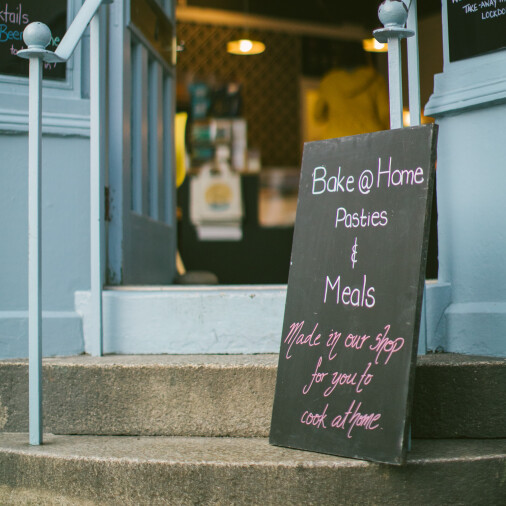 cktails
Beers
TAKE-AWAY
LOCKDO
Bake @ Home
Pasties
&
Meals
Made in our shop
for you to
cook at home.